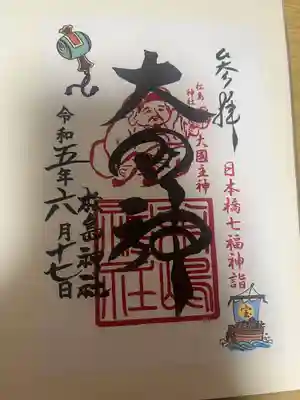 参拝
日本橋七福神詣
松島神社
大國主神
大国神
松島神社
令和五年六月十七日
松嶋神社
宝